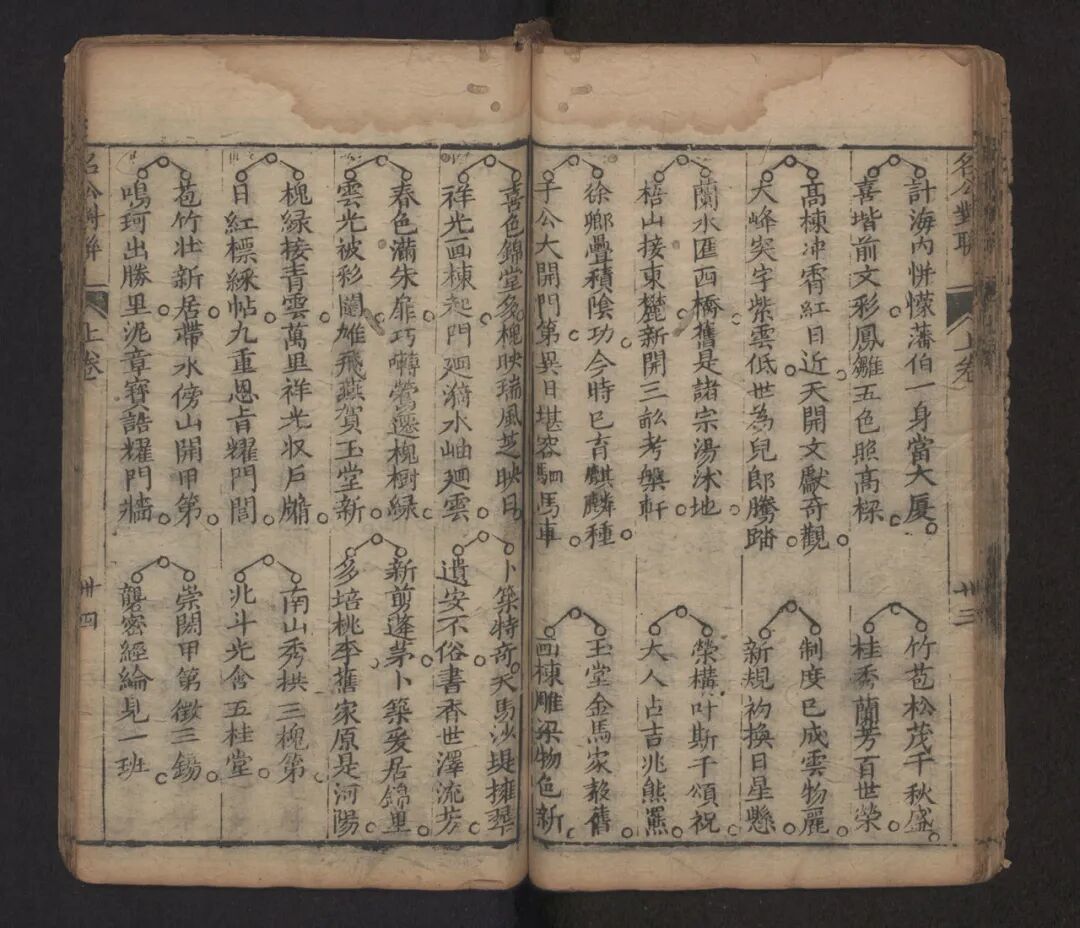 名公對聯
上卷
卅三
計海內帡幪藩伯一身當大厦
喜堦前文彩鳳雛五色照高樑
高棟冲霄紅日近天開文獻奇觀
犬峰突字紫雲低世為兒郎騰踏
蘭水匯西橋舊是諸宗湯沐地
梧山接東麓新開三畆考槃軒
徐鄉疊積陰功今時已育麒麟種
于公大開門第異日堪容駟馬車
竹苞松茂千秋盛
桂秀蘭芳百世榮
制度已成雲物麗
新規礿換日星懸
榮構叶斯千頌祝
大人占吉兆熊羆
玉堂金馬家敦舊
画棟雕梁物色新
喜色錦堂多槐映瑞風芝映日
祥光画棟起門廻漪水岫廻雲
春色滿朱扉巧囀鶯遷槐樹緑
雲光被彩闥雄飛燕賀玉堂新
槐緑接青雲萬里祥光収戶牖
日紅標綵帖九重恩旨耀門閭
苞竹壮新居帶水傍山開甲第
鳴珂出勝里泥章寳誥耀門牆
卜築特奇天馬沙堤擁翠
遺安不俗書香世澤流芳
新剪蓬茅卜築爰居錦里
多培桃李舊家原是河陽
南山秀拱三槐第
兆斗光含五桂堂
崇閎甲第徵三錫
龔密經綸見一班
名公對聯
上卷
卅四